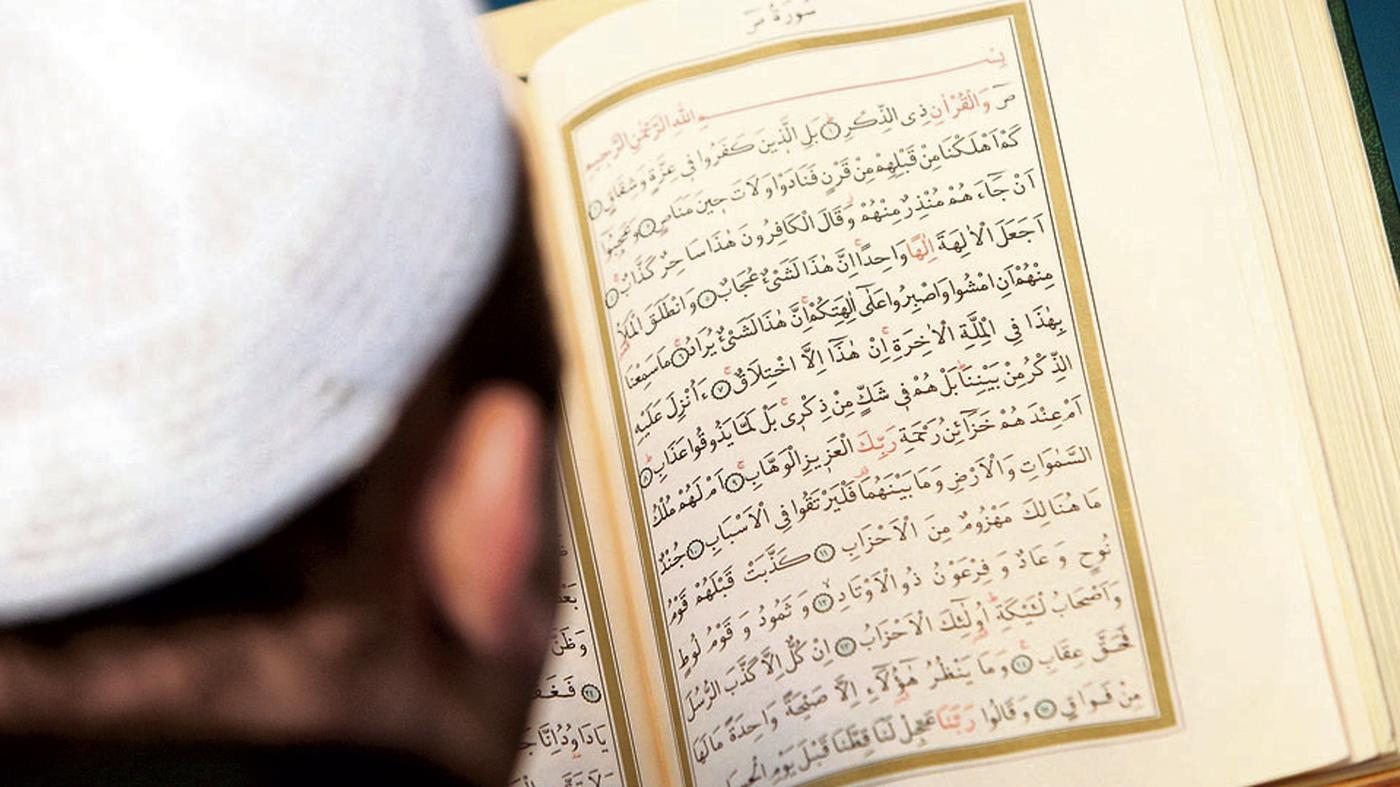 سُورَةُ صٓ
بِسْــــمِ اللّٰهِ الرَّحْمٰنِ الرَّحِيمِ
صٓ وَالْقُرْاٰنِ ذِى الذِّكْرِ ١ بَلِ الَّذِينَ كَفَرُوا فِى عِزَّةٍ وَشِقَاقٍ ٢
كَمْ اَهْلَكْنَا مِنْ قَبْلِهِمْ مِنْ قَرْنٍ فَنَادَوْا وَلَاتَ حِينَ مَنَاصٍ ٣ وَعَجِبُوا
اَنْ جَٓاءَ هُمْ مُنْذِرٌ مِنْهُمْ وَقَالَ الْكَافِرُونَ هٰذَا سَاحِرٌ كَذَّابٌ ٤
اَجَعَلَ الْاٰلِهَةَ اِلٰهًا وَاحِدًا اِنَّ هٰذَا لَشَىْءٌ عُجَابٌ ٥ وَانْطَلَقَ الْمَلَاُ
مِنْهُمْ اَنِ امْشُوا وَاصْبِرُوا عَلٰٓى اٰلِهَتِكُمْ اِنَّ هٰذَا لَشَىْءٌ يُرَادُ ٦ مَا سَمِعْنَا
بِهٰذَا فِى الْمِلَّةِ الْاٰخِرَةِ اِنْ هٰذَٓا اِلَّا اخْتِلَاقٌ ٧ ءَاُنْزِلَ عَلَيْهِ
الذِّكْرُ مِنْ بَيْنِنَا بَلْ هُمْ فِى شَكٍّ مِنْ ذِكْرِى بَلْ لَمَّا يَذُوقُوا عَذَابِ ٨
اَمْ عِنْدَ هُمْ خَزَٓائِنُ رَحْمَةِ رَبِّكَ الْعَزِيزِ الْوَهَّابِ ٩ اَمْ لَهُمْ مُلْكُ
السَّمٰوَاتِ وَالْاَرْضِ وَمَا بَيْنَهُمَا فَلْيَرْتَقُوا فِى الْاَسْبَابِ ١٠ جُنْدٌ
مَا هُنَالِكَ مَهْزُومٌ مِنَ الْاَحْزَابِ ١١ كَذَّبَتْ قَبْلَهُمْ قَوْمُ
نُوحٍ وَعَادٌ وَفِرْعَوْنُ ذُو الْاَوْتَادِ ١٢ وَثَمُودُ وَقَوْمُ لُوطٍ
وَاَصْحَابُ لْئَيْكَةِ اُولٰٓئِكَ الْاَحْزَابُ ١٣ اِنْ كُلٌّ اِلَّا كَذَّبَ الرُّسُلَ
فَحَقَّ عِقَابِ ١٤ وَمَا يَنْظُرُ هٰٓؤُلَٓاءِ اِلَّا صَيْحَةً وَاحِدَةً مَالَهَا
مِنْ فَوَاقٍ ١٥ وَقَالُوا رَبَّنَا عَجِّلْ لَنَا قِطَّنَا قَبْلَ يَوْمِ الْحِسَابِ
وَظَنَّ
٢٤ فَغَفَرْ
يَادَاوُدُ اِنَّا